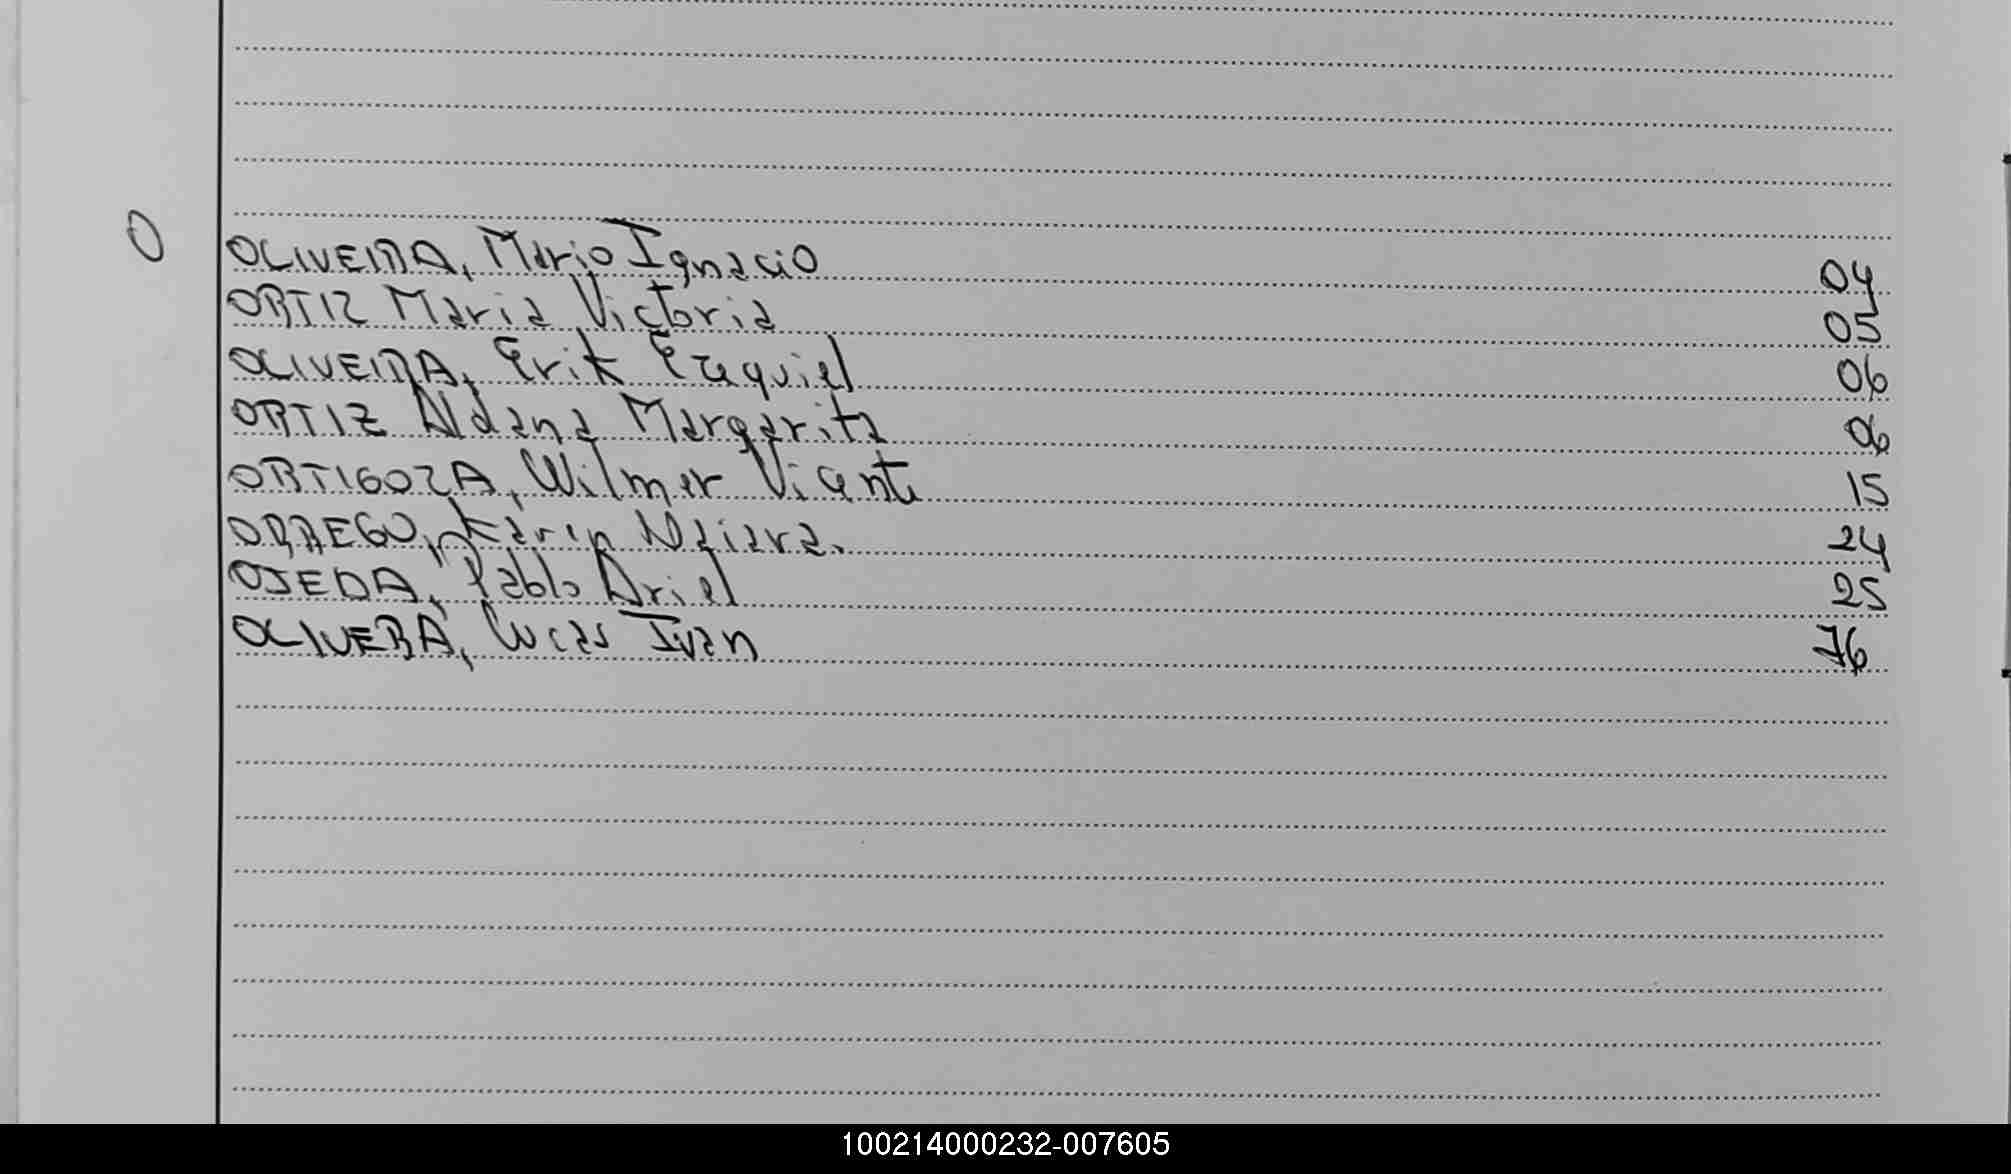 O
OLIVEIRA, Mario Ignacio 04
ORTIZ Maria Victoria 05
OLIVEIRA, Erik Ezequiel 06
ORTIZ Aldana Margarita 06
ORTIGOZA, Wilmer Vicente 15
ORREGO, Karen Naiara. 24
OJEDA, Pablo Ariel 25
OLIVERA, Lucas Ivan 76
100214000232-007605